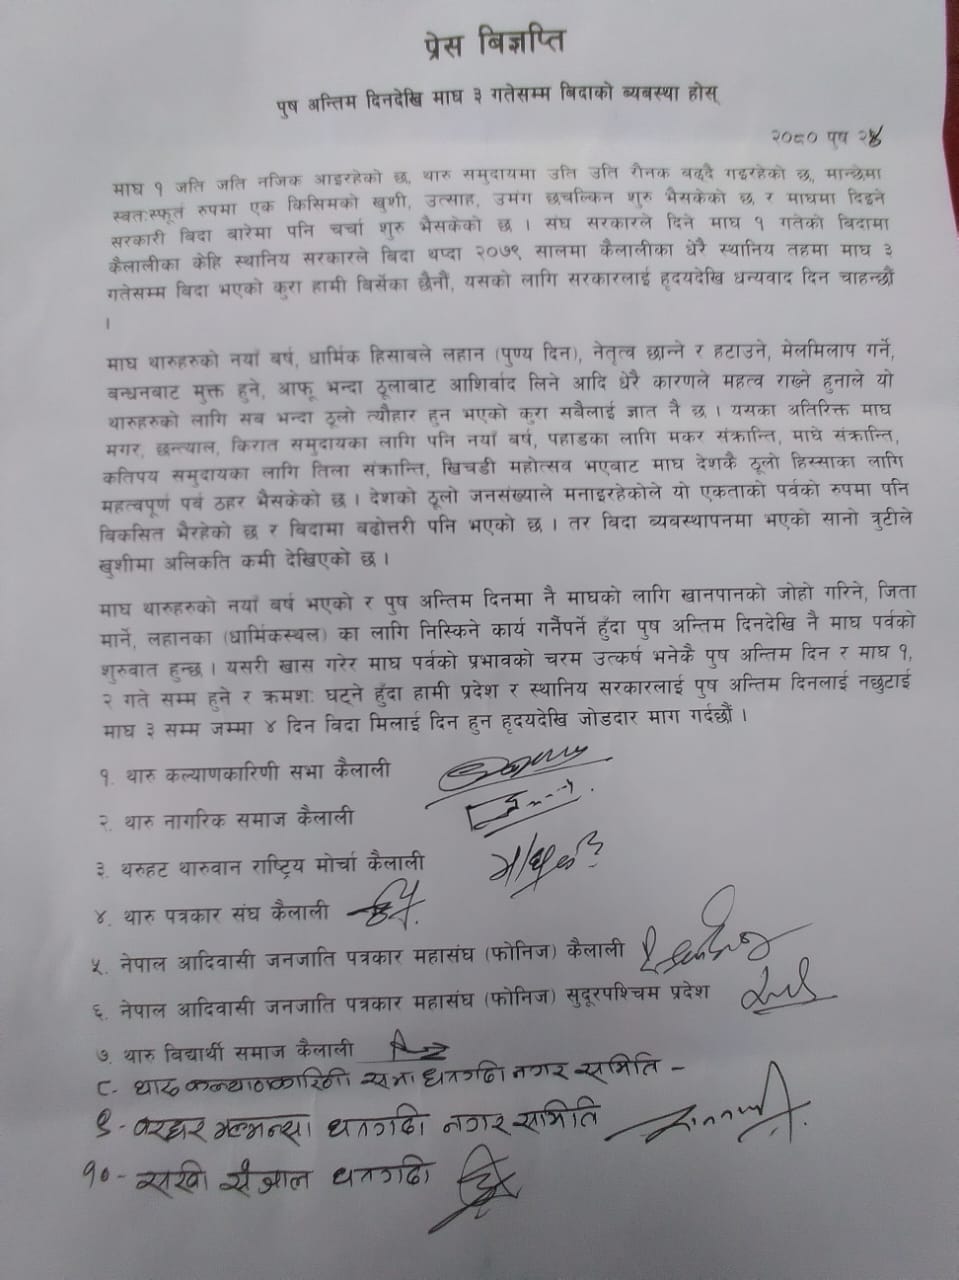 प्रेस बिज्ञप्ति
पुष अन्तिम दिनदेखि माघ ३ गतेसम्म बिदाको ब्यबस्था होस्
२०८० पुष २४
माघ १ जति जति नजिक आइरहेको छ, थारु समुदायमा उति उति रौनक बढ्दै गइरहेको छ, मान्छेमा
स्वत:स्फूर्त रुपमा एक किसिमको खुशी, उत्साह, उमंग छचल्किन शुरु भैसकेको छ र माघमा दिइने
सरकारी बिदा बारेमा पनि चर्चा शुरु भैसकेको छ । संघ सरकारले दिने माघ १ गतेको बिदामा
कैलालीका केहि स्थानिय सरकारले बिदा थप्दा २०७९ सालमा कैलालीका धेरै स्थानिय तहमा माघ ३
गतेसम्म बिदा भएको कुरा हामी बिर्सेका छैनौं, यसको लागि सरकारलाई हृदयदेखि धन्यवाद दिन चाहन्छौं
।
माघ थारुहरुको नयाँ बर्ष, धार्मिक हिसाबले लहान (पुण्य दिन), नेतृत्व छान्ने र हटाउने, मेलमिलाप गर्ने,
बन्धनबाट मुक्त हुने, आफू भन्दा ठूलाबाट आशिर्वाद लिने आदि धेरै कारणले महत्व राख्ने हुनाले यो
थारुहरुको लागि सब भन्दा ठूलो त्यौहार हुन भएको कुरा सबैलाई ज्ञात नै छ । यसका अतिरिक्त माघ
मगर, छन्त्याल, किरात समुदायका लागि पनि नयाँ बर्ष, पहाडका लागि मकर संक्रान्ति, माघे संक्रान्ति,
कतिपय समुदायका लागि तिला संक्रान्ति, खिचडी महोत्सव भएबाट माघ देशकै ठूलो हिस्साका लागि
महत्वपूर्ण पर्व ठहर भैसकेको छ । देशको ठूलो जनसंख्याले मनाइरहेकोले यो एकताको पर्वको रुपमा पनि
बिकसित भैरहेको छ र बिदामा बढोत्तरी पनि भएको छ । तर बिदा ब्यवस्थापनमा भएको सानो त्रुटीले
खुशीमा अलिकति कमी देखिएको छ ।
माघ थारुहरुको नयाँ बर्ष भएको र पुष अन्तिम दिनमा नै माघको लागि खानपानको जोहो गरिने, जिता
मार्ने, लहानका (धार्मिकस्थल) का लागि निस्किने कार्य गर्नैपर्ने हुँदा पुष अन्तिम दिनदेखि नै माघ पर्वको
शुरुवात हुन्छ । यसरी खास गरेर माघ पर्वको प्रभावको चरम उत्कर्ष भनेकै पुष अन्तिम दिन र माघ १,
२ गते सम्म हुने र क्रमश: घट्ने हुँदा हामी प्रदेश र स्थानिय सरकारलाई पुष अन्तिम दिनलाई नछुटाई
माघ ३ सम्म जम्मा ४ दिन विदा मिलाई दिन हुन हृदयदेखि जोडदार माग गर्दछौं ।
१. थारु कल्याणकारिणी सभा कैलाली
२. थारु नागरिक समाज कैलाली
३. थरुहट थारुवान राष्ट्रिय मोर्चा कैलाली
४. थारु पत्रकार संघ कैलाली
५. नेपाल आदिवासी जनजाति पत्रकार महासंघ (फोनिज) कैलाली
६. नेपाल आदिवासी जनजाति पत्रकार महासंघ (फोनिज) सुदूरपश्चिम प्रदेश
७. थारु विद्यार्थी समाज कैलाली
८- थारु कल्याणकारिणी सभा धनगढी नगर समिति -
९- बरघर भल्मन्सा धनगढी नगर समिति
१०- सखी सँजाल धनगढी